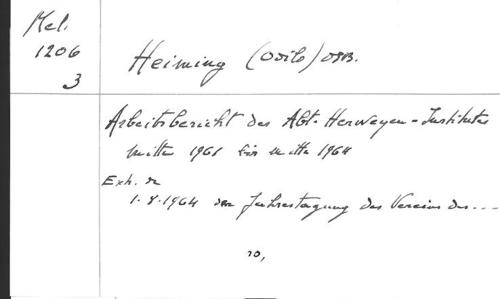 Mel.
1206
3
Heiming (Odilo) OSB.
Arbeitsbericht des Abt-Herwegen-Institutes
Mitte 1961 bis Mitte 1964
Exh. de
1.8.1964 der Jahrestagung des Vereins des...
10,